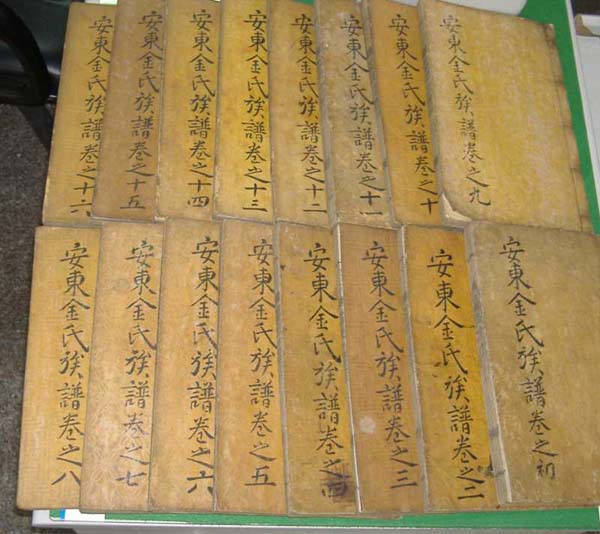 安東金氏族譜卷之九
安東金氏族譜卷之十
安東金氏族譜卷之十一
安東金氏族譜卷之十二
安東金氏族譜卷之十三
安東金氏族譜卷之十四
安東金氏族譜卷之十五
安東金氏族譜卷之十六
安東金氏族譜卷之初
安東金氏族譜卷之二
安東金氏族譜卷之三
安東金氏族譜卷之四
安東金氏族譜卷之五
安東金氏族譜卷之六
安東金氏族譜卷之七
安東金氏族譜卷之八